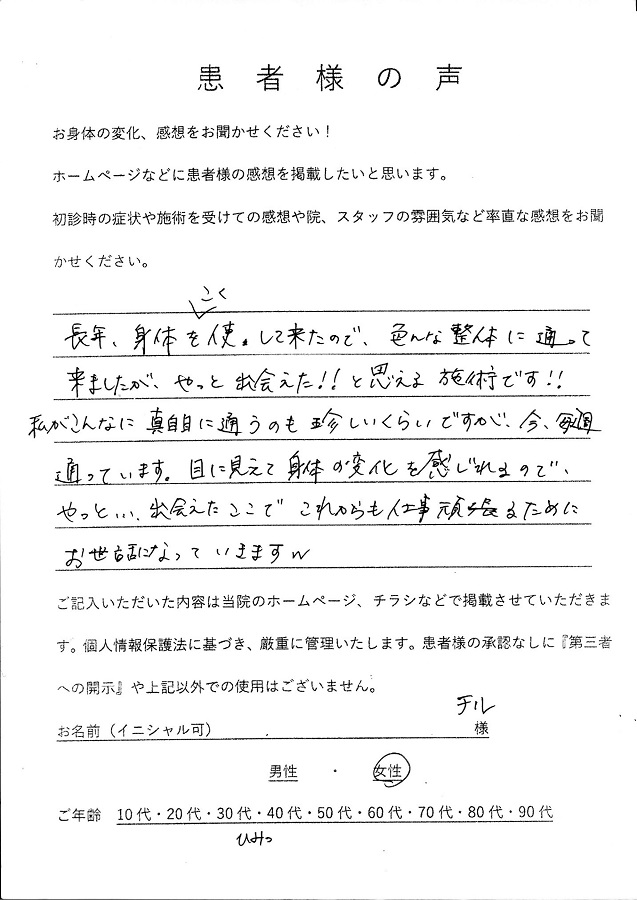 患者様の声
お身体の変化、感想をお聞かせください！
ホームページなどに患者様の感想を掲載したいと思います。
初診時の症状や施術を受けての感想や院、スタッフの雰囲気など率直な感想をお聞
かせください。
こく
長年、身体を使、して来たので、色んな整体に通って
来ましたが、やっと出会えた!!と思える施術です!!
私がこんなに真面目に通うのも珍しいくらいですが、今、毎週
通っています。目に見えて身体の変化を感じれるので、
やっと… 出会えたここでこれからも仕事頑張るために
お世話になっていきますw
ご記入いただいた内容は当院のホームページ、チラシなどで掲載させていただきま
す。個人情報保護法に基づき、厳重に管理いたします。患者様の承認なしに『第三者
への開示』や上記以外での使用はございません。
チル
お名前（イニシャル可） 様
男性 ・ 女性
ご年齢 10代・20代・30代・40代・50代・60代・70代・80代・90代
ひみつ